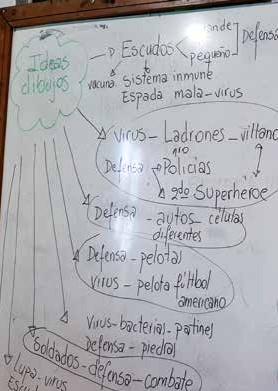 Ideas
dibujos
Escudos
grande
pequeño
Defensa
vacuna
Sistema inmune
Espada mala-virus
Virus - Ladrones - villano
Defensa Policías
2do Superheroe
Defensa - autos células
diferentes
Defensa - pelotas
Virus - pelota fútbol
americano
Virus-bacterias-patines
Defensa - piedras
Soldados-defensa-combate
Lupa-virus